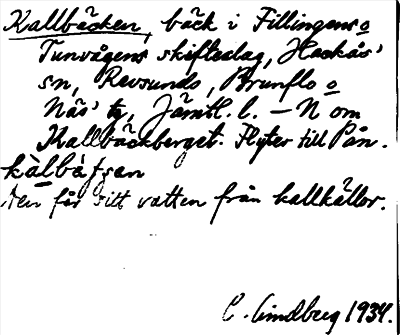 Kallbäcken, bäck i Fillingens o
Tunvågens skifteslag, Hackås'
sn, Revsunds, Brunflo o
Näs' tg, Jämtl. l. – N om
Kallbäckberget. Flyter till Pån.
Den får sitt vatten från kallkällor.
C. Lindberg 1934.